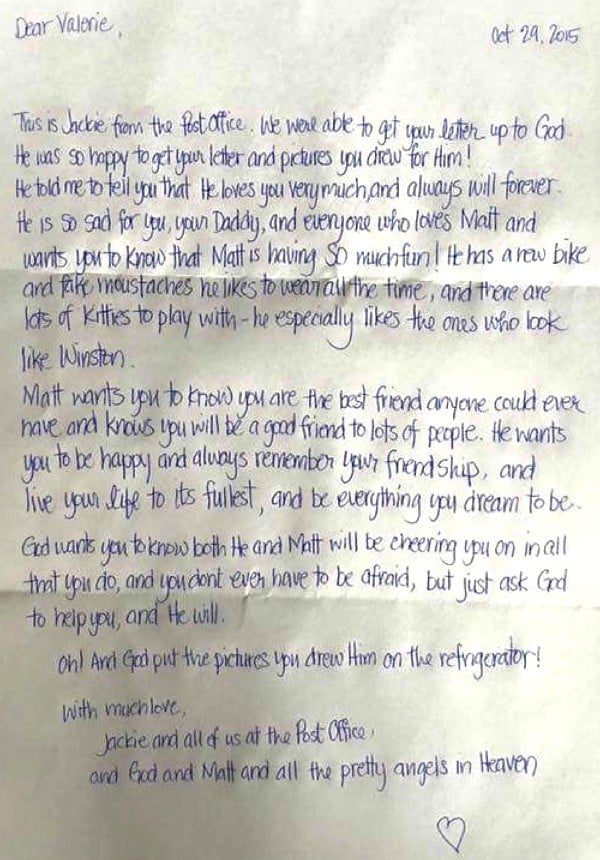 Dear Valerie,
Oct 29, 2015
This is Jackie from the Post Office. We were able to get your letter up to God.
He was so happy to get your letter and pictures you drew for Him!
He told me to tell you that He loves you very much, and always will forever.
He is so sad for you, your Daddy, and everyone who loves Matt and
wants you to know that Matt is having SO much fun! He has a new bike
and fake moustaches he likes to wear all the time, and there are
lots of kitties to play with - he especially likes the ones who look
like Winston.
Matt wants you to know you are the best friend anyone could ever
have and knows you will be a good friend to lots of people. He wants
you to be happy and always remember your friendship, and
live your life to its fullest, and be everything you dream to be.
God wants you to know both He and Matt will be cheering you on in all
that you do, and you dont ever have to be afraid, but just ask God
to help you, and He will.
Oh! And God put the pictures you drew Him on the refrigerator!
With much love,
Jackie and all of us at the Post Office,
and God and Matt and all the pretty angels in Heaven